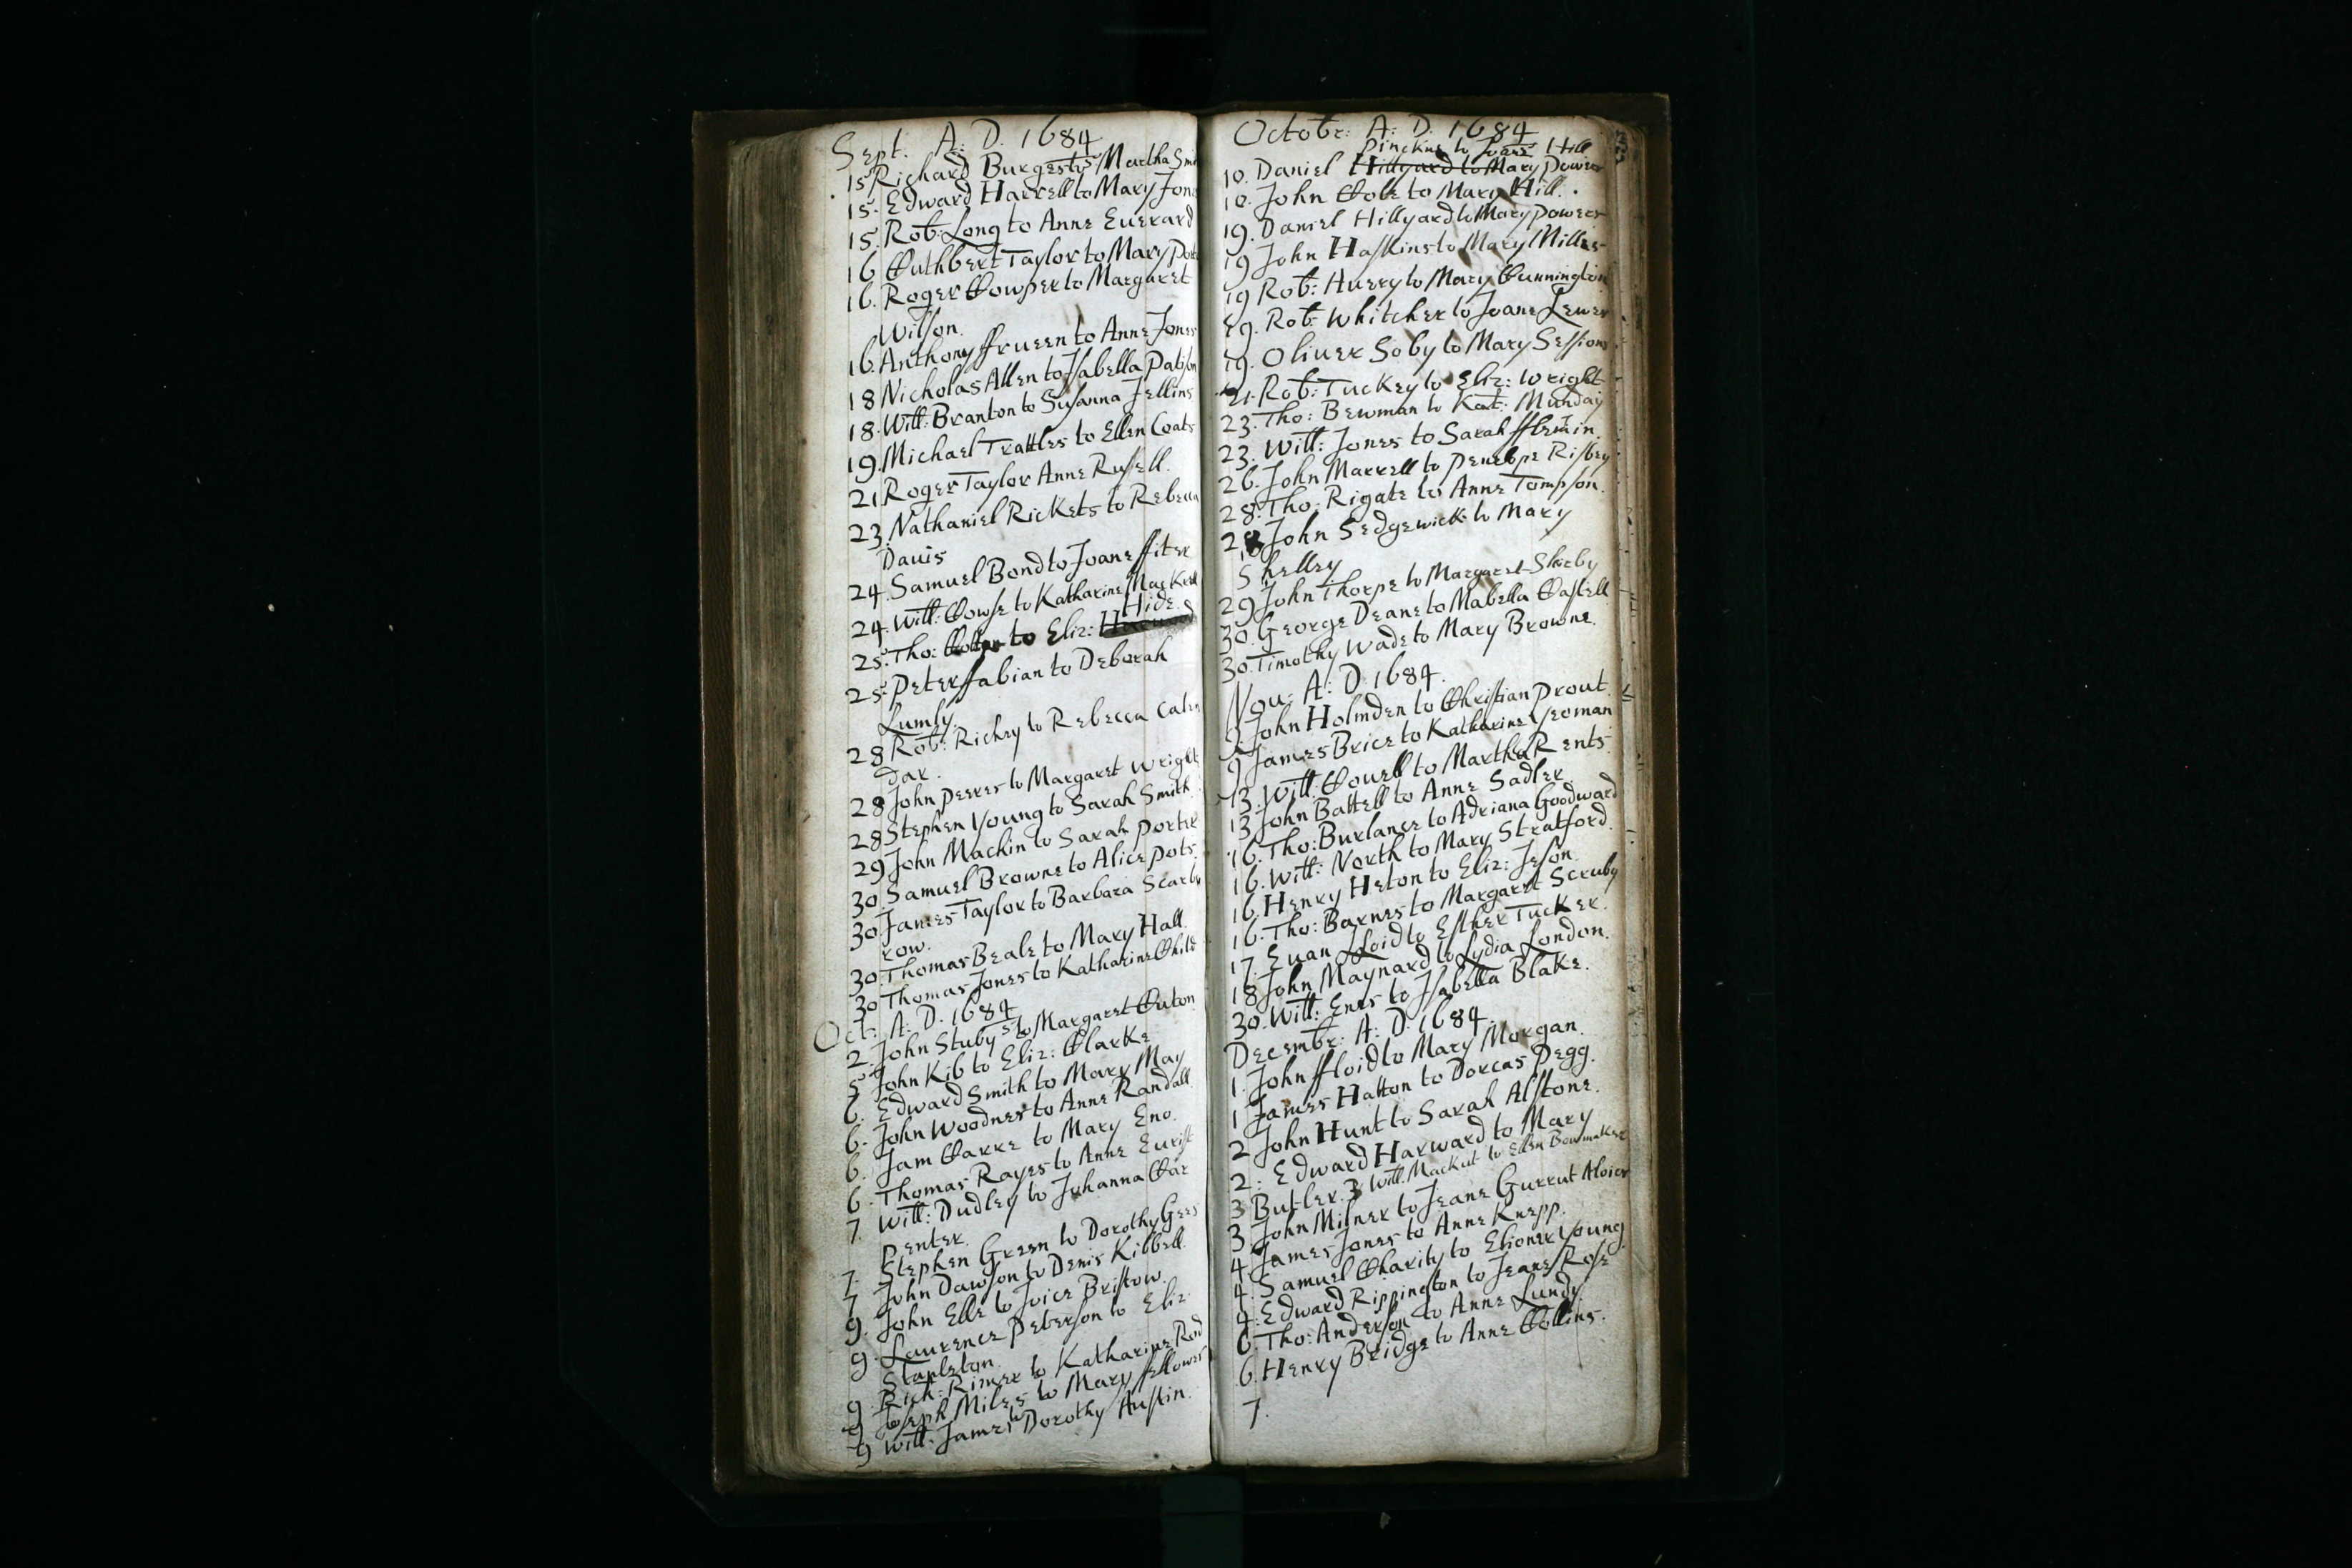 Sept. A: D. 1684
15 Richard Burges to Martha Smi
15. Edward Harrell to Mary Jone
15. Rob: Long to Anne Euerard
16 Cuthbert Taylor to Mary Por
16. Roger Cowper to Margaret
Wilson.
16. Anthony ffrueen to Anne Jones
18 Nicholas Allen to Isabella Patison
18. Will: Branton to Susanna Jellins
19. Michael Trattles to Ellen Coats
21 Roger Taylor Anne Russell.
23 Nathaniel Rickets to Rebecca
Dauis
24. Samuel Bond to Joane ffiter
24. Will: Cowse to Katharine Mackrell
Hide.
25. Tho: to Eliz:
25. Peter ffabian to Deborah
Lumly.
28 Rob: Richey to Rebecca Calen
dar.
28 John Peeres to Margaret Wright
28 Stephen Young to Sarah Smith.
29 John Machin to Sarah Porter
30 Samuel Browne to Alice Pots.
30 James Taylor to Barbara Scarbo
row.
30. Thomas Beale to Mary Hall.
30 Thomas Jones to Katharine Child
Oct: A: D. 1684
2. John Stubys to Margaret Cuton
5 John Kib to Eliz: Clarke
6. Edward Smith to Mary May
6. John Woodnes to Anne Randall.
6. Jam Carre to Mary Eno.
6. Thomas Rayes to Anne Eurist
7. Will: Dudley to Johanna Car
penter.
7. Stephen Green to Dorothy Gees
7 John Dawson to Denis Kibbell.
9. John Elle to Joice Bristow.
9. Laurence Peterson to Eliz
Stapleton.
9. Rich: Rimer to Katharine Rod
9 Joseph Miles to Mary ffellowes
9 Will: James to Dorothy Austin.
Octobr: A: D. 1684
Pinckne to Joane Hill
10. Daniel Hillyard to Mary Powers
10. John Cole to Mary Hill.
19. Daniel Hillyard to Mary Powers
19 John Haskins to Mary Milles
19 Rob: Auery to Mary Cunnington
19. Rob: Whitcher to Joane Lewes
19. Oliuer Soby to Mary Sessions
21. Rob: Tuckey to Eliz: Wright
23. Tho: Bewman to Kat: Munday
23. Will: Jones to Sarah
26. John Marrell to Penelope Risbey
28. Tho: Rigate to Anne Tompson.
28 John Sedgewick to Mary
Shelley
29 John Thorpe to Margaret Skeeby
30. George Deane to Mabella Castell
30. Timothy Wade to Mary Browne.
Nou: A: D. 1684.
John Holmden to Christian Prout.
9 James Brice to Katharine Yeoman
13. Will: Couell to Martha Rents.
13 John Battell to Anne Sadler.
16. Tho: Burlance to Adriana Goodward
16. Will: North to Mary Stratford.
16. Henry Heton to Eliz: Jeson.
16. Tho: Barnes to Margaret Scruby
17. Euan Lloid to Esther Tucker.
18 John Maynard to Lydia London.
30. Will: Enes to Isabella Blake.
Decembr: A: D. 1684.
1. John ffloid to Mary Morgan.
1 James Hatton to Dorcas Pegg.
2 John Hunt to Sarah Alstone.
2. Edward Harward to Mary
3 Butler. 3 Will: Mackut to Ellen Bowmaker
3. John Milner to Jeane Gurrut
4 James Jones to Anne Knepp.
4. Samuel Charity to Elioner Young
4. Edward Rippington to Jeane Rose
6. Tho: Anderson to Anne Lundy.
6. Henry Bridge to Anne Collins.
7.